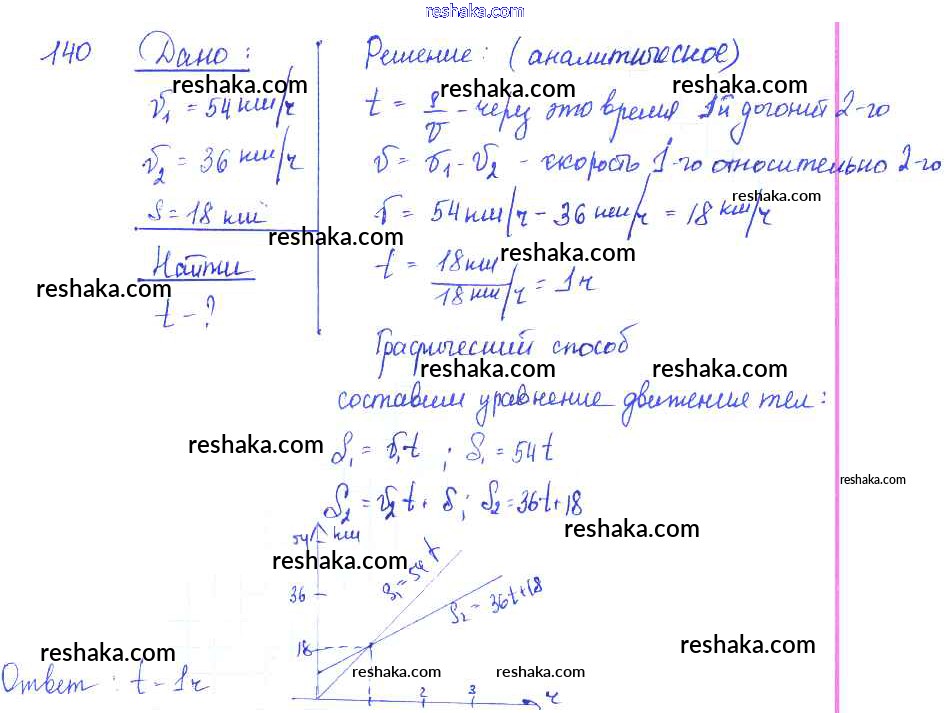 reshaka.com
140 Дано: Решение: (аналитическое)
reshaka.com reshaka.com
v₁ = 54 км/ч t = s/v - через это время 1й догонит 2-го
v₂ = 36 км/ч v = v₁ - v₂ - скорость 1-го относительно 2-го
reshaka.com reshaka.com
S = 18 км v = 54 км/ч - 36 км/ч = 18 км/ч
reshaka.com reshaka.com
Найти t = 18 км / 18 км/ч = 1ч
reshaka.com
t - ?
Графический способ
reshaka.com reshaka.com
составим уравнение движение тел:
reshaka.com
S₁ = v₁t ; S₁ = 54t
reshaka.com
S₂ = v₂t + S; S₂ = 36t+18
reshaka.com
54 км
reshaka.com
S₁ = 54t
36
S₂ = 36t+18
18
reshaka.com reshaka.com
reshaka.com reshaka.com
Ответ: t - 1ч
1 2 3 ч